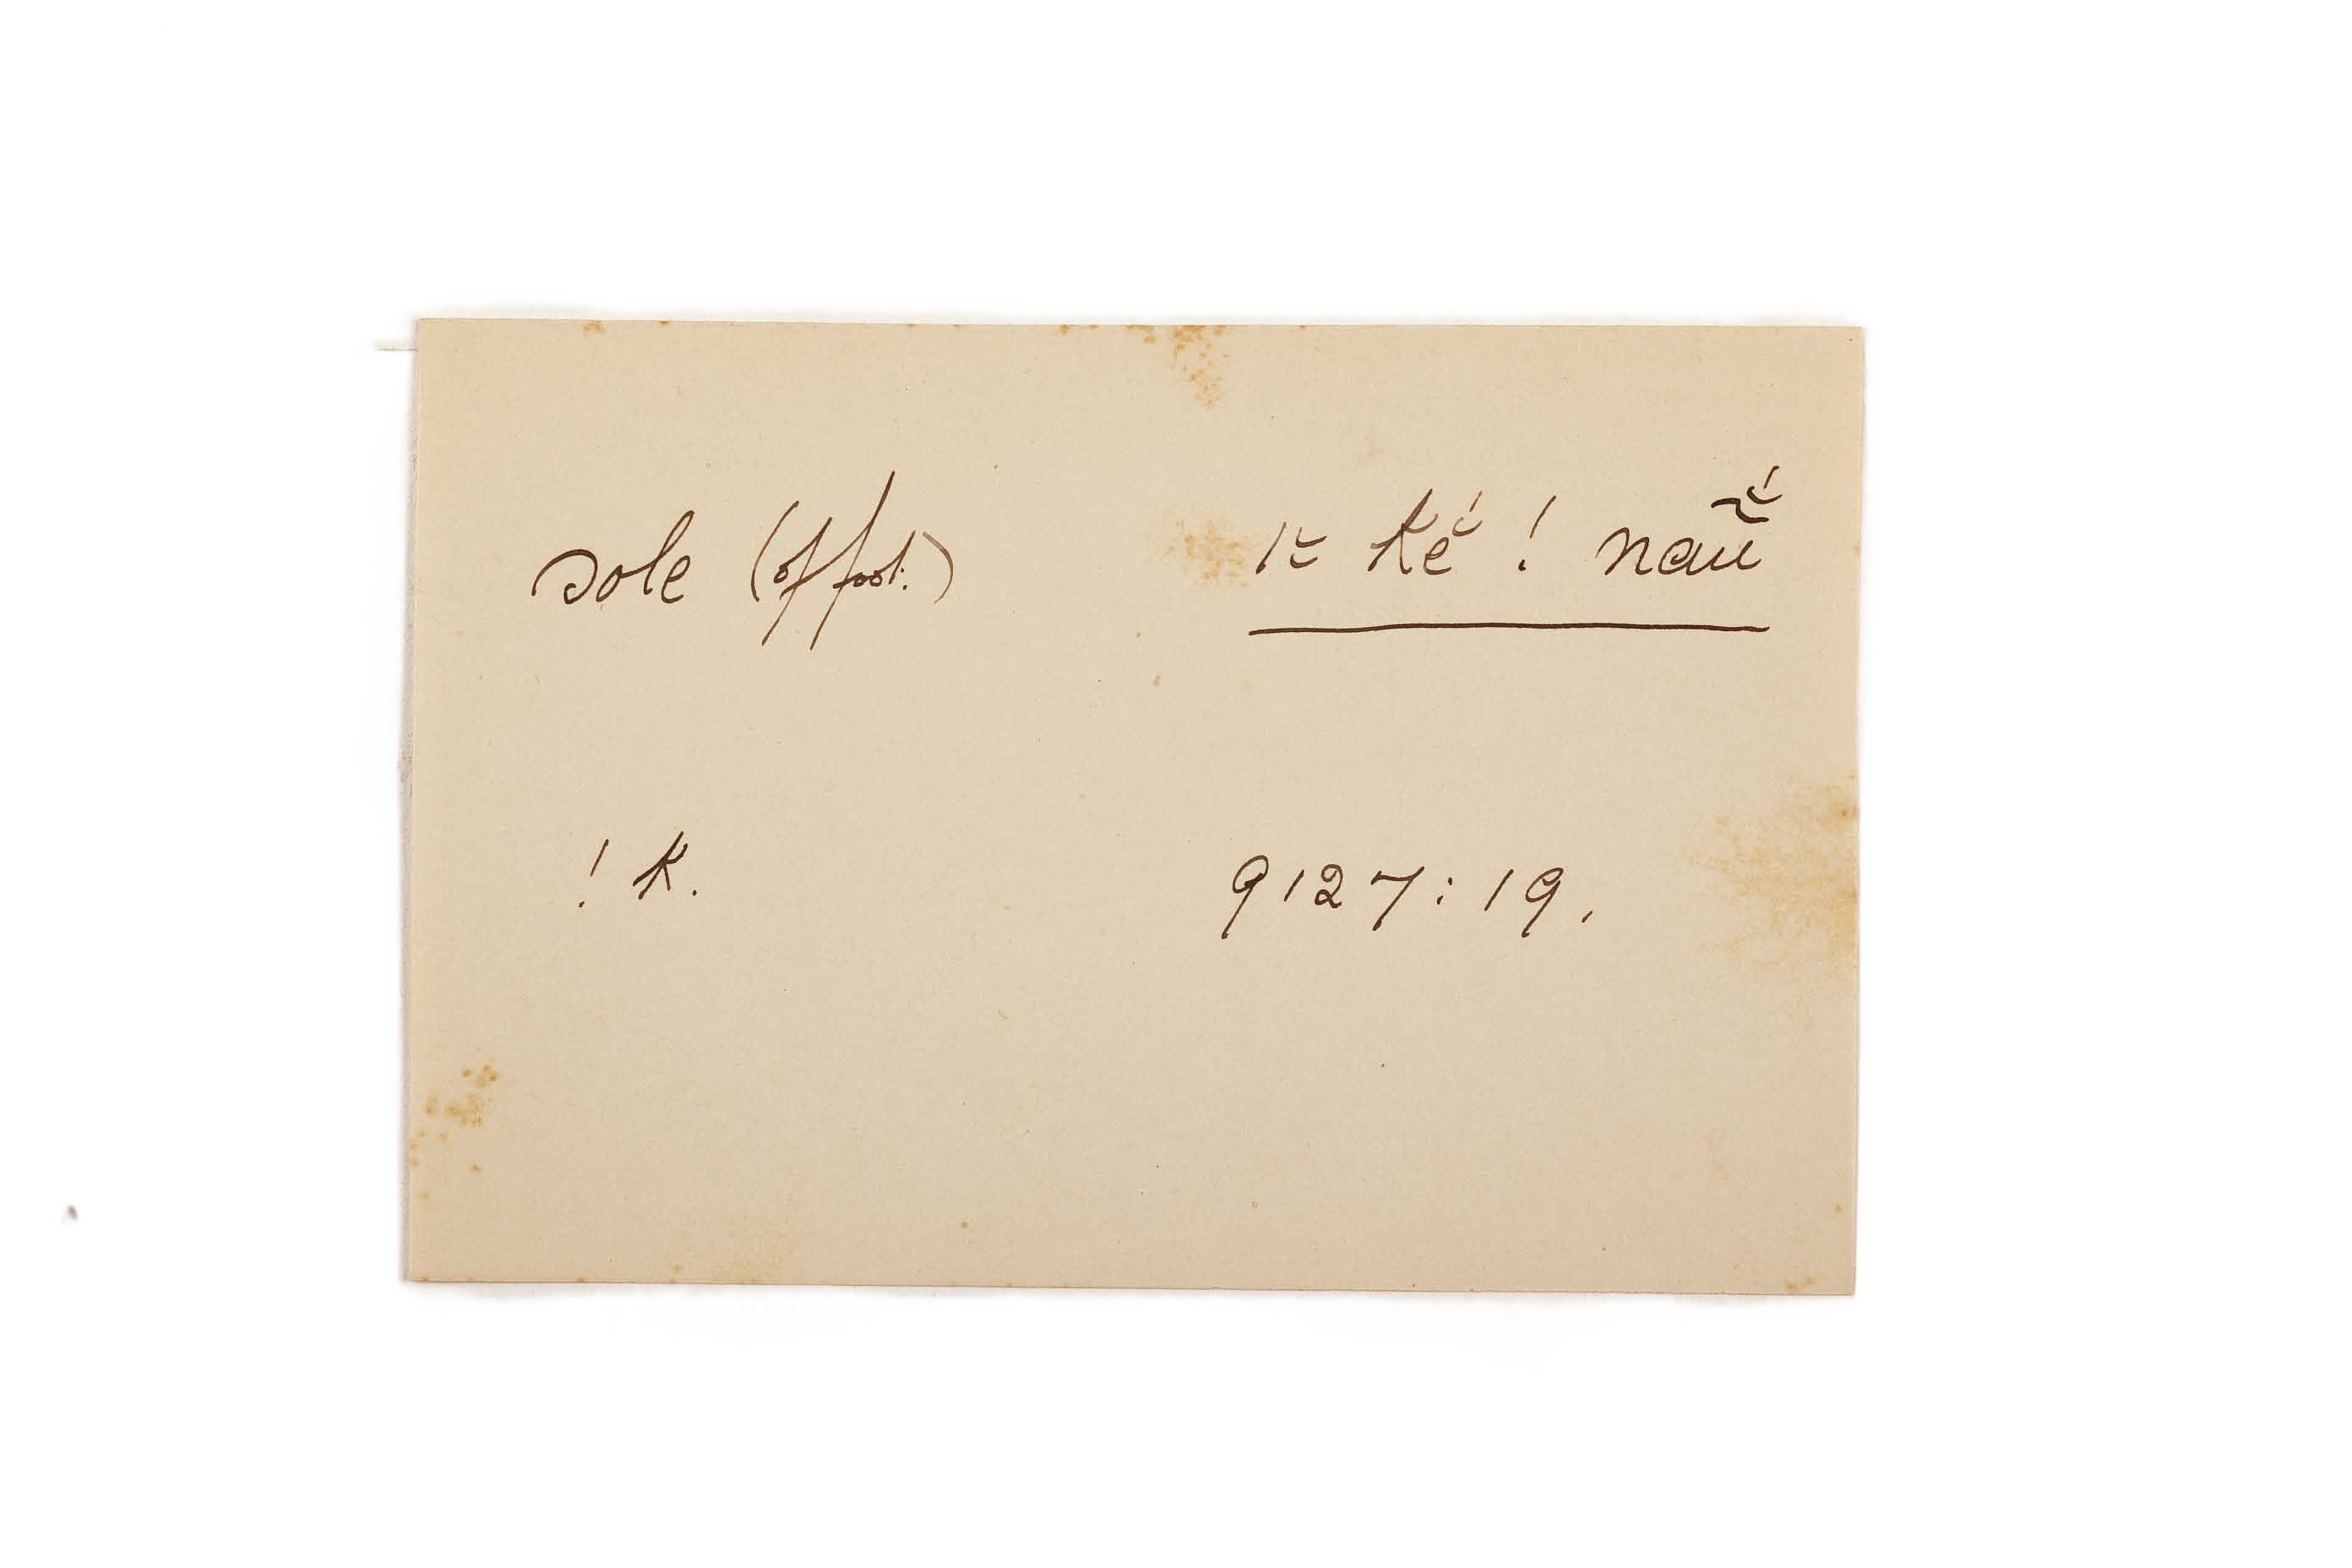 sole (of foot.) |ĭ kĕ́ ! naũ̆́
! k. 9127:19.